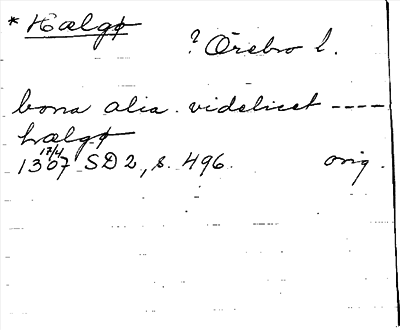 * Hælgø
? Örebro l.
bona alia. videlicet ----
hælgø
1307 17/4 SD 2, s. 496. orig.